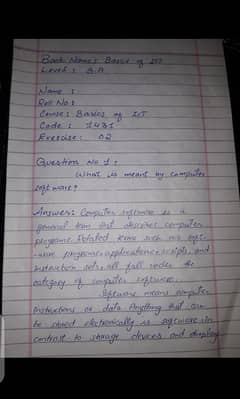 Book Name: Basic of ICT
Level: B.A
Name:
Roll No:
Course: Basics of ICT
Code: 1431
Exercise: 02
Question No 1:
What is meant by computer
software?
Answer: Computer software is a
general term that describes computer
programs. Related terms such as soft-
ware programs, applications, scripts, and
instruction sets all fall under the
category of computer software.
Software means computer
instructions or data. Anything that can
be stored electronically is software, in
contrast to storage devices and display